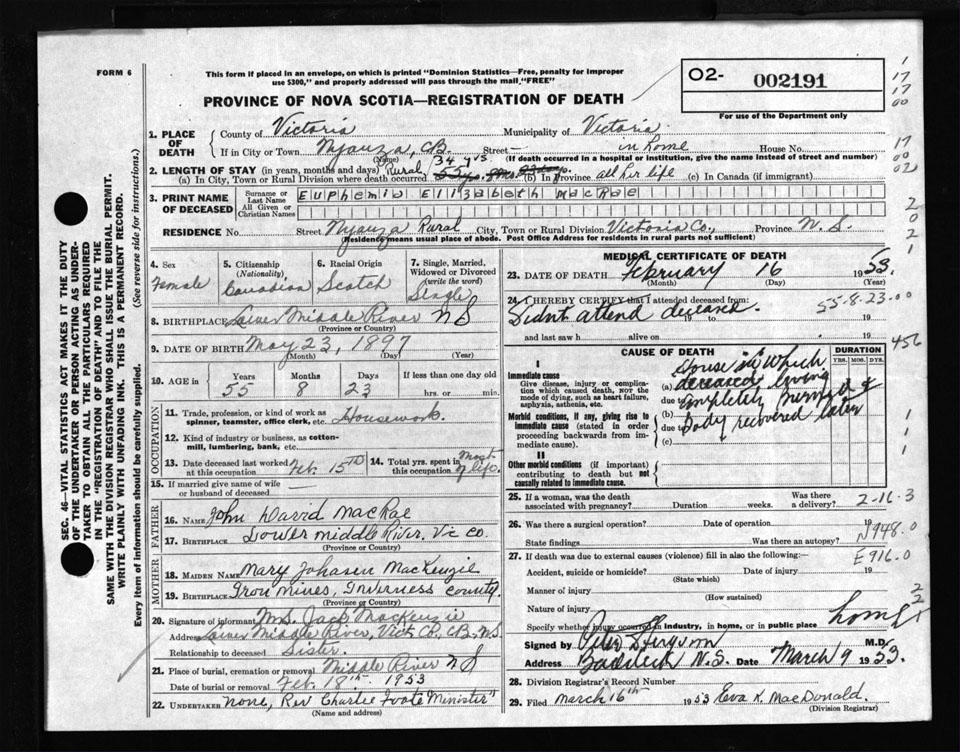 FORM 6
This form if placed in an envelope, on which is printed "Dominion Statistics—Free, penalty for improper
use $300," and properly addressed will pass through the mail "FREE"
O2- 002191
For use of the Department only
PROVINCE OF NOVA SCOTIA—REGISTRATION OF DEATH
1. PLACE OF DEATH
County of Victoria Municipality of Victoria
If in City or Town Nyanza, C.B. Street — in home House No.
(Name) (If death occurred in a hospital or institution, give the name instead of street and number)
2. LENGTH OF STAY (in years, months and days) Rural 34 yrs.
(a) In City, Town or Rural Division where death occurred (b) In Province all her life (c) In Canada (if immigrant)
3. PRINT NAME OF DECEASED
Surname or Last Name Euphemia Elizabeth MacRae
All Given or Christian Names
RESIDENCE No. Street Nyanza Rural City, Town or Rural Division Victoria Co., Province N.S.
(Residence means usual place of abode. Post Office Address for residents in rural parts not sufficient)
4. Sex Female
5. Citizenship (Nationality) Canadian
6. Racial Origin Scotch
7. Single, Married, Widowed or Divorced (write the word) Single
8. BIRTHPLACE Lower Middle River NS
(Province or Country)
9. DATE OF BIRTH May 23, 1897
(Month) (Day) (Year)
10. AGE in Years 55 Months 8 Days 23 If less than one day old hrs. or min.
OCCUPATION
11. Trade, profession, or kind of work as spinner, teamster, office clerk, etc. Housework.
12. Kind of industry or business, as cotton-mill, lumbering, bank, etc.
13. Date deceased last worked at this occupation Feb. 15th
14. Total yrs. spent in this occupation most of life.
15. If married give name of wife or husband of deceased
FATHER
16. Name John David MacRae
17. BIRTHPLACE Lower middle River, Vic Co.
(Province or Country)
MOTHER
18. MAIDEN NAME Mary Johasen MacKenzie
19. BIRTHPLACE Iron mines, Inverness County.
(Province or Country)
20. Signature of informant Ms. Jack MacKenzie
Address Lower Middle River, Vict Co, C.B. N.S.
Relationship to deceased Sister.
21. Place of burial, cremation or removal Middle River NS
Date of burial or removal Feb. 18th 1953
22. UNDERTAKER none, Rev Charlie Foote Minister"
(Name and address)
MEDICAL CERTIFICATE OF DEATH
23. DATE OF DEATH February 16 1953.
(Month) (Day) (Year)
24. I HEREBY CERTIFY that I attended deceased from:
Didn't attend deceased. 19 to 19
and last saw h alive on 19
55-8-23-00
456
CAUSE OF DEATH
DURATION
YRS. MOS. DYS.
I
Immediate cause
Give disease, injury or complication which caused death, NOT the mode of dying, such as heart failure, asphyxia, asthenia, etc.
Morbid conditions, if any, giving rise to immediate cause (stated in order proceeding backwards from immediate cause).
II
Other morbid conditions (if important) contributing to death but not causally related to immediate cause.
House in which
(a) deceased living
due to completely burned &
(b) body recovered later
due to
(c)
25. If a woman, was the death associated with pregnancy? Duration weeks. Was there a delivery? 2-16-3
26. Was there a surgical operation? Date of operation 19
State findings Was there an autopsy? N948.0
27. If death was due to external causes (violence) fill in also the following:— E916.0
Accident, suicide or homicide? Date of injury 19
(State which)
Manner of injury
(How sustained)
Nature of injury
Specify whether injury occurred in industry, in home, or in public place home
Signed by M.D.
Address Baddeck N.S. Date March 9 1953.
28. Division Registrar's Record Number
29. Filed March 16th 1953 Eva K. MacDonald.
(Division Registrar)
SEC. 46—VITAL STATISTICS ACT MAKES IT THE DUTY
OF THE UNDERTAKER OR PERSON ACTING AS UNDERTAKER TO OBTAIN ALL THE PARTICULARS REQUIRED
IN THE "REGISTRATION OF DEATH" AND TO FILE THE
SAME WITH THE DIVISION REGISTRAR WHO SHALL ISSUE THE BURIAL PERMIT.
WRITE PLAINLY WITH UNFADING INK. THIS IS A PERMANENT RECORD.
Every item of information should be carefully supplied. (See reverse side for instructions.)